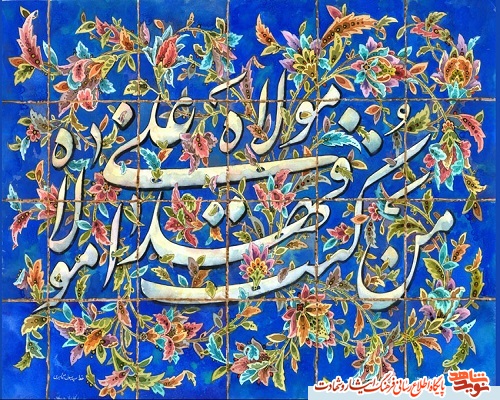 من كنت مولاه
فهذا علی مولاه
نوید شاهد
پایگاه اطلاع رسانی فرهنگ ایثار و شهادت